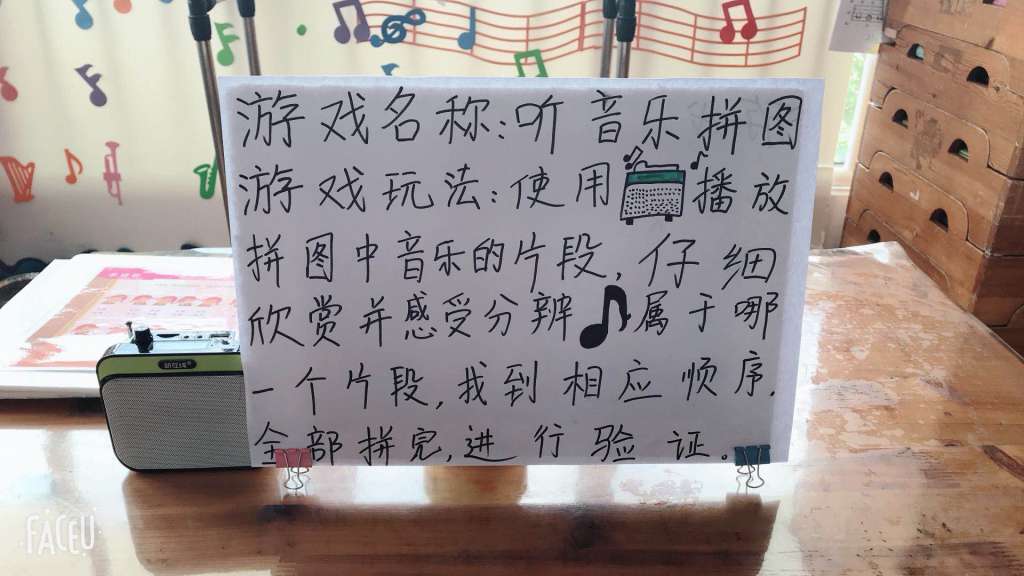 游戏名称:听音乐拼图
游戏玩法:使用播放
拼图中音乐的片段,仔细
欣赏并感受分辨属于哪
一个片段,找到相应顺序.
全部拼完,进行验证。
FACEU